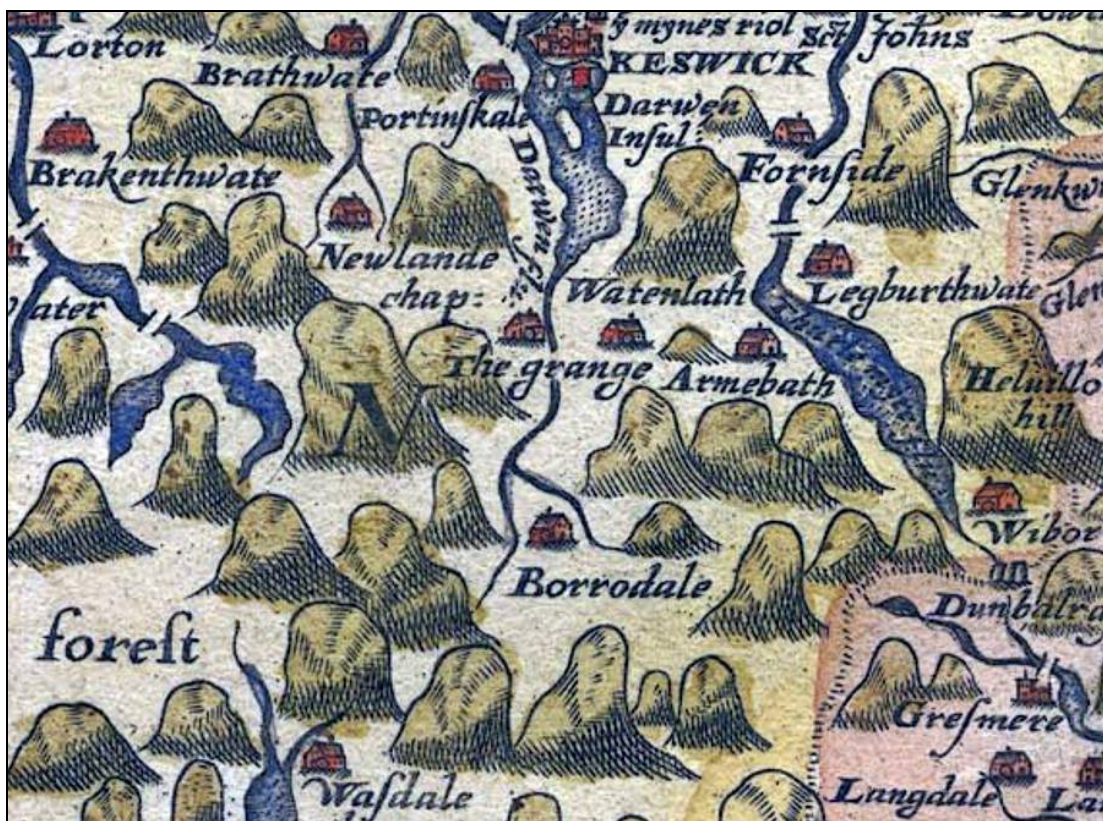 ẏ mynes riol
Lorton
Sct Johns
Brathwate
KESWICK
Portinſkale
Darwen
Inſul:
Brakenthwate
Fornſide
Glenkw
Darwen flu:
Newlande
chap:
Watenlath
Legburthwate
Glen
water
The grange
Armebath
Helvillo
hill
N
Wibor
Borrodale
an
Dunbalra
foreſt
Greſmere
Waſdale
Langdale
La